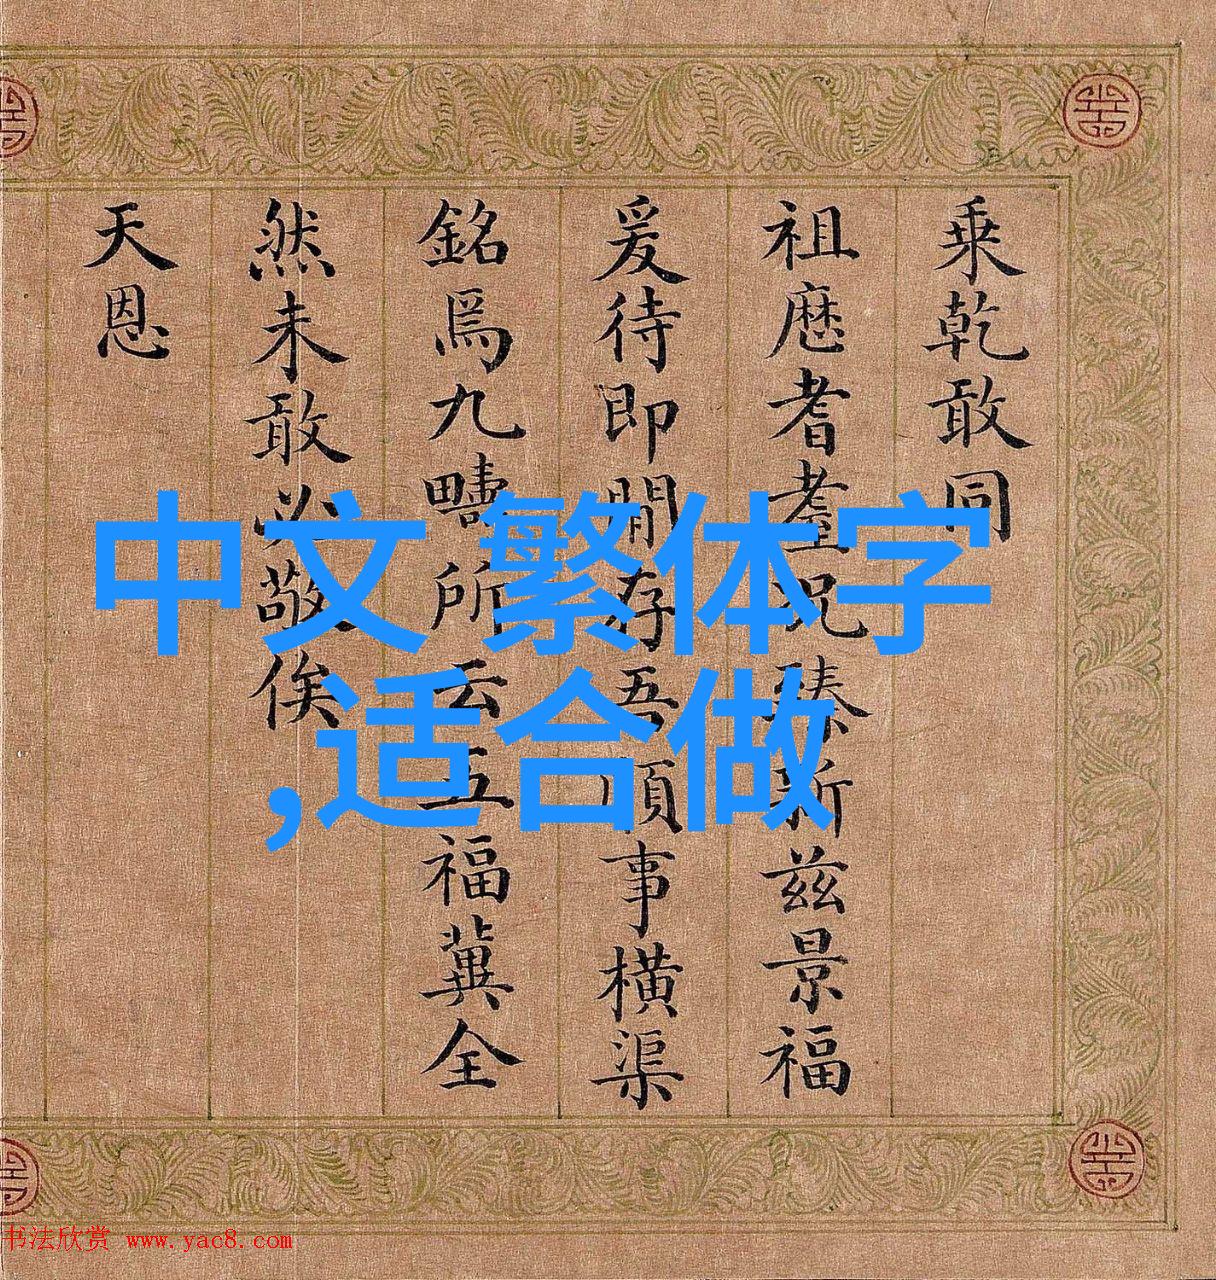 乗乾敢同
祖歷耆耋況臻新兹景福
爰待即閒存吾順事橫渠
銘爲九疇所云五福冀全
然未敢必敬俟
天恩
中文 繁体字
,适合做
书法欣赏 www.yac8.com